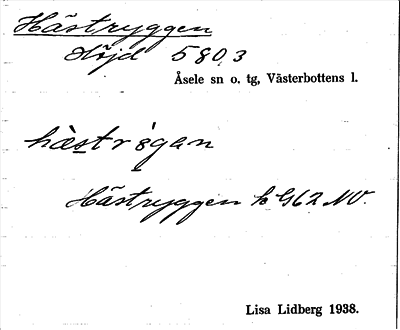 Hästryggen
Höjd 580,3
Åsele sn o. tg, Västerbottens l.
Hästryggen k G62 NV.
Lisa Lidberg 1938.